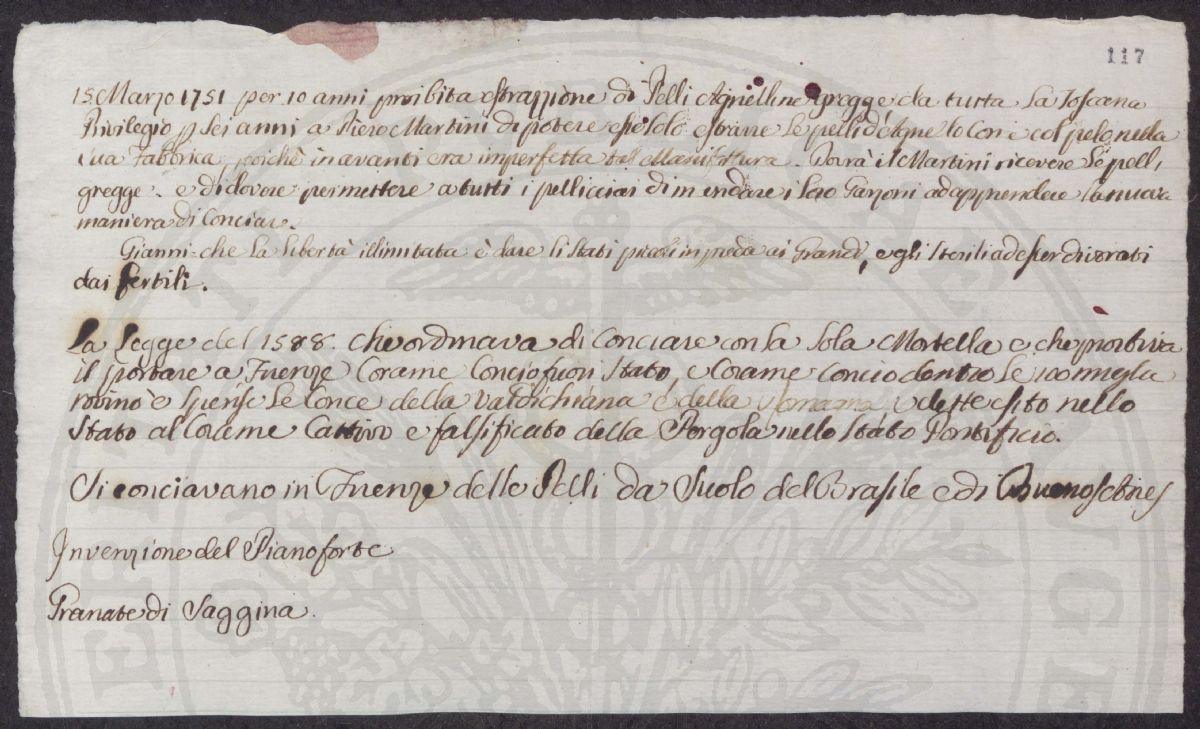 117
15. Marzo 1751 per 10 anni proibita estrazzione di Pelli Agnelline gregge da tutta la Toscana
Privilegio p Sei anni a Piero Martini di potere esso solo estrarre le pelli d'Agnello Conce col pelo nella
sua Fabbrica, poichè in avanti era imperfetta tal Manifattura. Dovrà il Martini ricevere le pelli
gregge. e di dovere permettere a tutti i pelliciai di mandare i loro Garzoni ad apprendere la nuova
maniera di Conciar.
Gianni = che la libertà illimitata è dare li Stati piccoli in preda ai Grandi, e gli Sterili ad esser divorati
dai fertili.
La Legge del 1588. che ordinava di Conciare con la sola Mortella e che proibiva
il portare a Firenze Corame Concio fuori Stato, e Corame Concio dentro le 100 miglia
rovinò e spense le Conce della Valdichiana e della Romagna, e dette esito nello
Stato al Corame Cattivo e falsificato della Pergola nello Stato Pontificio.
Si conciavano in Firenze delle Pelli da Suolo del Brasile e di Buenos Aires
Invenzione del Pianoforte
Granate di Saggina.